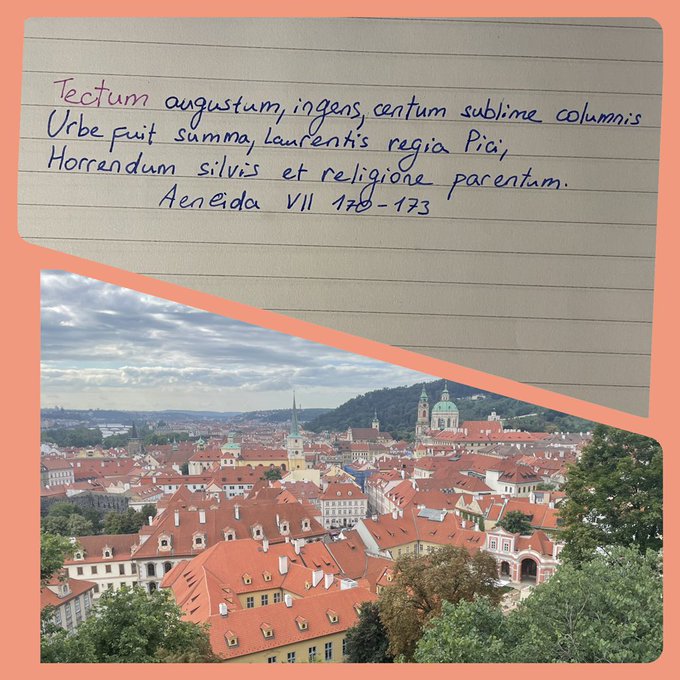 Tectum augustum, ingens, centum sublime columnis
Urbe fuit summa, Laurentis regia Pici,
Horrendum silvis et religione parentum.
Aeneida VII 170-173